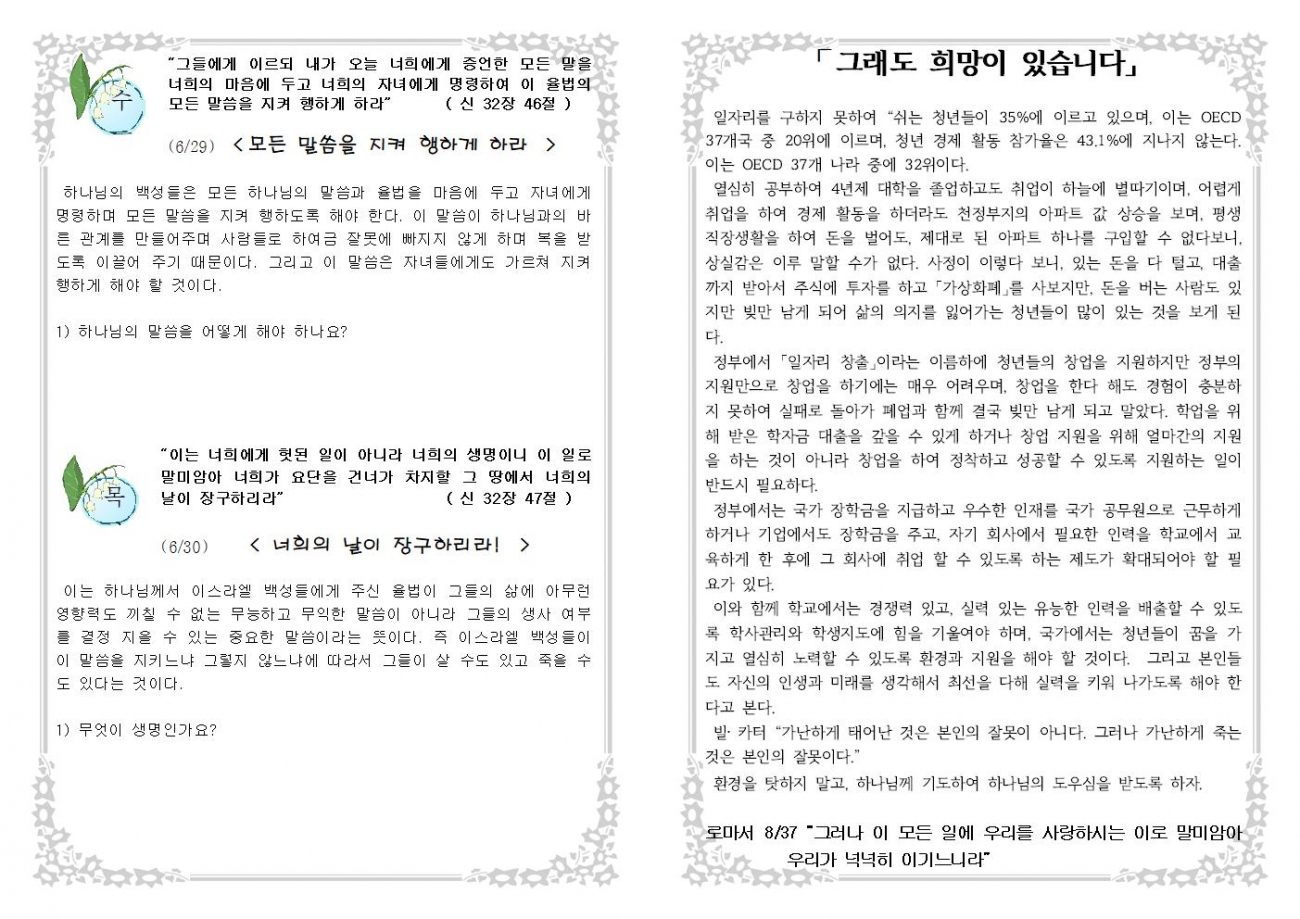 수
“그들에게 이르되 내가 오늘 너희에게 증언한 모든 말을
너희의 마음에 두고 너희의 자녀에게 명령하여 이 율법의
모든 말씀을 지켜 행하게 하라” ( 신 32장 46절 )
(6/29) <모든 말씀을 지켜 행하게 하라 >
하나님의 백성들은 모든 하나님의 말씀과 율법을 마음에 두고 자녀에게
명령하며 모든 말씀을 지켜 행하도록 해야 한다. 이 말씀이 하나님과의 바
른 관계를 만들어주며 사람들로 하여금 잘못에 빠지지 않게 하며 복을 받
도록 이끌어 주기 때문이다. 그리고 이 말씀은 자녀들에게도 가르쳐 지켜
행하게 해야 할 것이다.
1) 하나님의 말씀을 어떻게 해야 하나요?
목
“이는 너희에게 헛된 일이 아니라 너희의 생명이니 이 일로
말미암아 너희가 요단을 건너가 차지할 그 땅에서 너희의
날이 장구하리라” ( 신 32장 47절 )
(6/30) < 너희의 날이 장구하리라! >
이는 하나님께서 이스라엘 백성들에게 주신 율법이 그들의 삶에 아무런
영향력도 끼칠 수 없는 무능하고 무익한 말씀이 아니라 그들의 생사 여부
를 결정 지울 수 있는 중요한 말씀이라는 뜻이다. 즉 이스라엘 백성들이
이 말씀을 지키느냐 그렇지 않느냐에 따라서 그들이 살 수도 있고 죽을 수
도 있다는 것이다.
1) 무엇이 생명인가요?
「그래도 희망이 있습니다」
일자리를 구하지 못하여 “쉬는 청년들이 35%에 이르고 있으며, 이는 OECD
37개국 중 20위에 이르며, 청년 경제 활동 참가율은 43.1%에 지나지 않는다.
이는 OECD 37개 나라 중에 32위이다.
열심히 공부하여 4년제 대학을 졸업하고도 취업이 하늘에 별따기이며, 어렵게
취업을 하여 경제 활동을 하더라도 천정부지의 아파트 값 상승을 보며, 평생
직장생활을 하여 돈을 벌어도, 제대로 된 아파트 하나를 구입할 수 없다보니,
상실감은 이루 말할 수가 없다. 사정이 이렇다 보니, 있는 돈을 다 털고, 대출
까지 받아서 주식에 투자를 하고 「가상화폐」를 사보지만, 돈을 버는 사람도 있
지만 빚만 남게 되어 삶의 의지를 잃어가는 청년들이 많이 있는 것을 보게 된
다.
정부에서 「일자리 창출」이라는 이름하에 청년들의 창업을 지원하지만 정부의
지원만으로 창업을 하기에는 매우 어려우며, 창업을 한다 해도 경험이 충분하
지 못하여 실패로 돌아가 폐업과 함께 결국 빚만 남게 되고 말았다. 학업을 위
해 받은 학자금 대출을 갚을 수 있게 하거나 창업 지원을 위해 얼마간의 지원
을 하는 것이 아니라 창업을 하여 정착하고 성공할 수 있도록 지원하는 일이
반드시 필요하다.
정부에서는 국가 장학금을 지급하고 우수한 인재를 국가 공무원으로 근무하게
하거나 기업에서도 장학금을 주고, 자기 회사에서 필요한 인력을 학교에서 교
육하게 한 후에 그 회사에 취업 할 수 있도록 하는 제도가 확대되어야 할 필
요가 있다.
이와 함께 학교에서는 경쟁력 있고, 실력 있는 유능한 인력을 배출할 수 있도
록 학사관리와 학생지도에 힘을 기울여야 하며, 국가에서는 청년들이 꿈을 가
지고 열심히 노력할 수 있도록 환경과 지원을 해야 할 것이다. 그리고 본인들
도 자신의 인생과 미래를 생각해서 최선을 다해 실력을 키워 나가도록 해야 한
다고 본다.
빌· 카터 “가난하게 태어난 것은 본인의 잘못이 아니다. 그러나 가난하게 죽는
것은 본인의 잘못이다.”
환경을 탓하지 말고, 하나님께 기도하여 하나님의 도우심을 받도록 하자.
로마서 8/37 “그러나 이 모든 일에 우리를 사랑하시는 이로 말미암아
우리가 넉넉히 이기느니라”